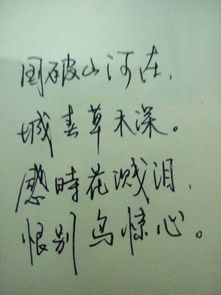 国破山河在，
城春草木深。
感時花溅泪，
恨别鸟惊心。